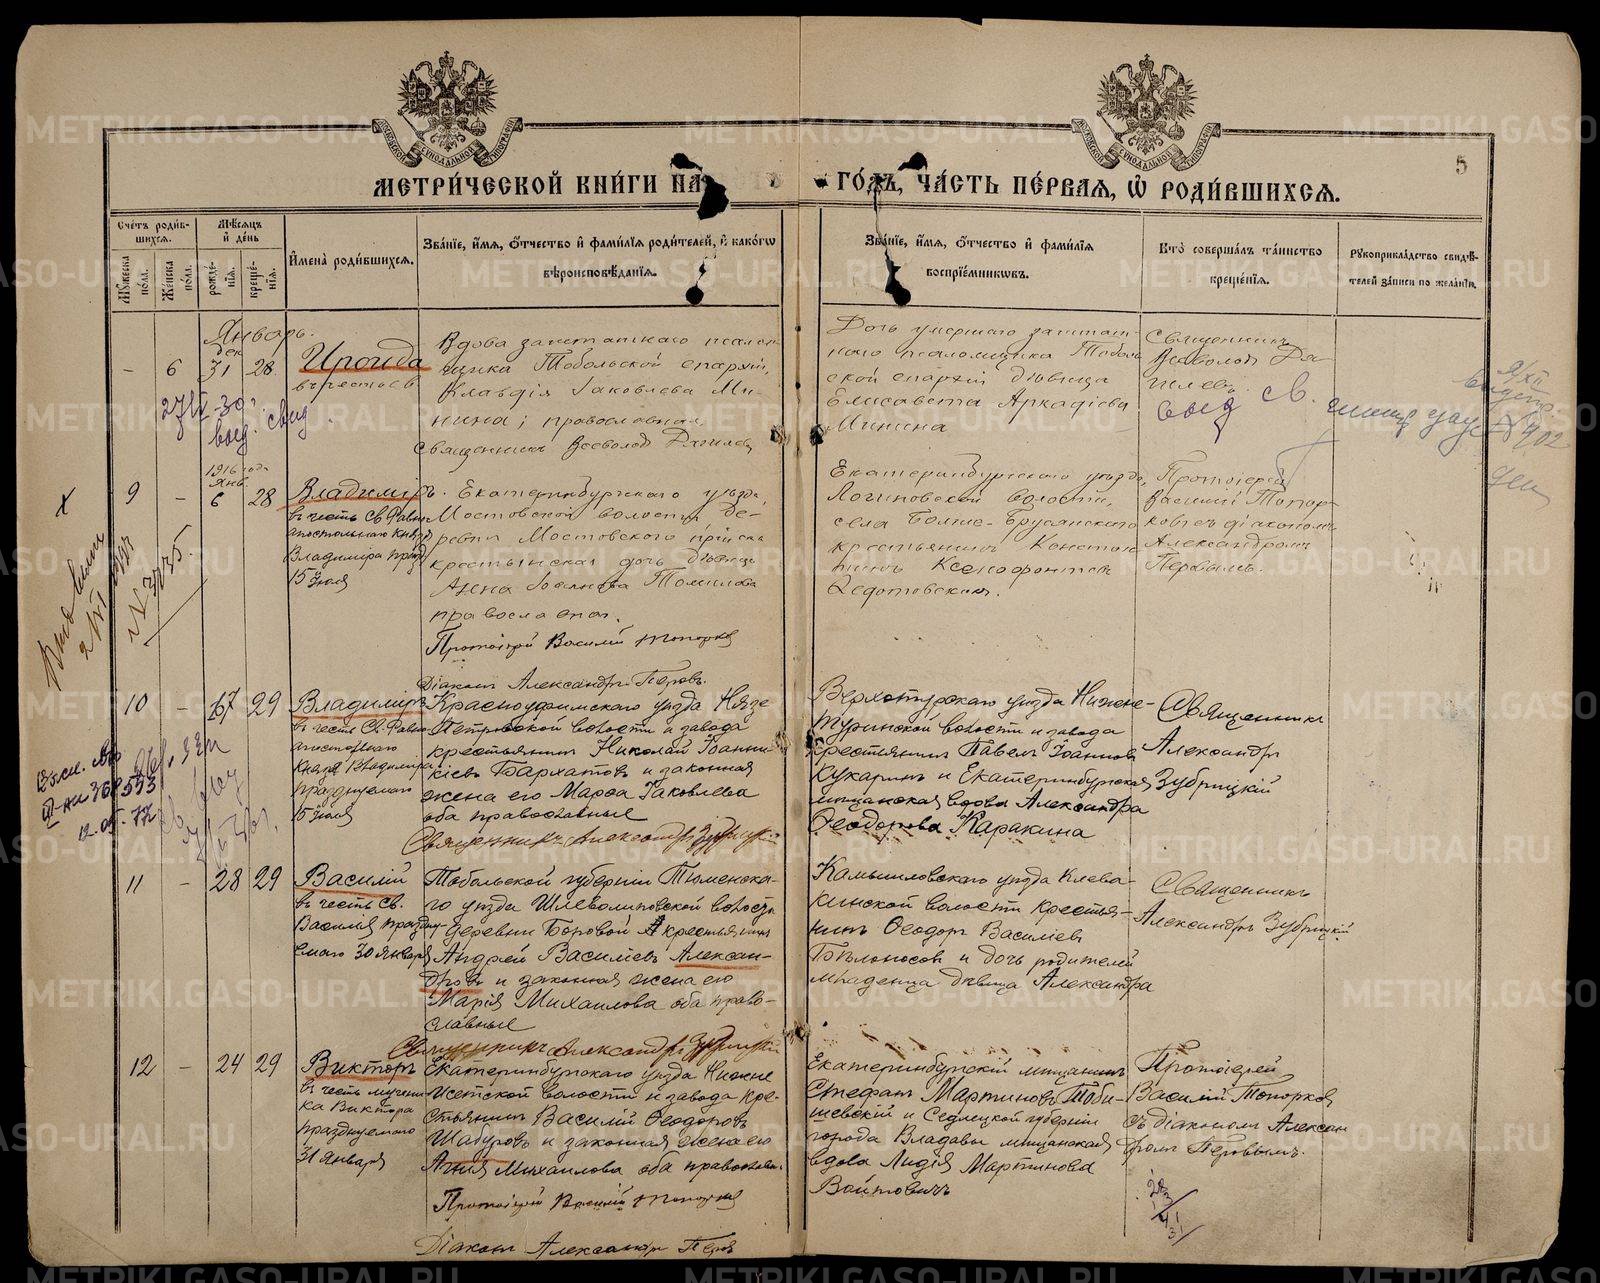 МЕТРИ́ЧЕСКОЙ КНИ́ГИ НА
ГО́ДЪ, ЧА́СТЬ ПЕ́РВАЯ, Ѡ РОДИ́ВШИХСЯ.
5
Сче́тъ роди́в-
шихся.
Мѣ́сяцъ
и де́нь
Му́жеска
по́ла.
Же́нска
по́ла.
рожде́-
нїя.
креще́-
нїя.
И҆мена̀ роди́вшихся.
Зва́нїе, и҆́мя, ѻ҆́тчество и҆ фами́лїя роди́телей, и҆ како́гѡ
вѣроисповѣ́данїя.
Зва́нїе, и҆́мя, ѻ҆́тчество и҆ фами́лїя
воспрїе́мникѡвъ.
Кто̀ соверша́лъ та́инство
креще́нїя.
Рукоприкла́дство свидѣ́-
телей за́писи по жела́нїю.
Январь.
- 6 дек 31 28
Ироида
въ честь св
Вдова заштатнаго псалом
щика Тобольской епархіи,
Клавдія Іаковлева Ми-
нина; православная
Священникъ Всеволодъ
Дочь умершаго заштат-
наго псаломщика Тоболь
ской епархіи дѣвица
Елисавета Аркадіева
Минина
Священникъ
Всеволодъ
выд. свид
выд св.
9 - 1916 года Янв. 6 28
Владиміръ.
въ честь Св. Равно-
апостольнаго Князя
Владиміра празд
15 Іюля
Екатеринбургскаго уѣзда,
Мостовской волости, де-
ревни Мостовского пріиска
крестьянская дочь дѣвица
Анна Томилова
православная.
Протоіерей Василій Топорковъ
Діаконъ Александръ Перовъ.
Екатеринбургскаго уѣзда,
Логиновской волости,
села Больше-Брусянскаго
крестьянинъ Констан
тинъ Ксенофонтовъ
Федотовскихъ.
Протоіерей
Василій Топор-
ковъ съ діакономъ
Александромъ
Перовымъ.
10 - 17 29
Владиміръ
въ честь Св. Равно-
апостольнаго
Князя Владиміра
празднуемаго
15 Іюля
Красноуфимскаго уѣзда Нязе
Петровской волости и завода
крестьянинъ Николай Іоанни-
кіевъ Бархатовъ и законная
жена его Марѳа Іаковлева
оба православные
Священникъ Александръ Зубрицкій
Верхотурскаго уѣзда Нижне-
туринской волости и завода
крестьянинъ Павелъ Іоанновъ
Кукаринъ и Екатеринбургская
мѣщанская вдова Александра
Ѳеодорова Каракина
Священникъ
Александръ
Зубрицкій
11 - 28 29
Василій
въ честь Св.
Василія праздну-
емаго 30 января
Тобольской губерніи Тюменска-
го уѣзда волости
деревни Боровой крестьянинъ
Андрей Василіевъ Алексан-
дровъ и законная жена его
Марія Михаилова оба право-
славные
Священникъ Александръ Зубрицкій
Камышловскаго уѣзда Клева-
кинской волости крестья-
нинъ Ѳеодоръ Василіевъ
Бѣлоносовъ и дочь родителей
младенца дѣвица Александра
Священникъ
Александръ Зубрицкій
12 - 24 29
Викторъ
въ честь мучени
ка Виктора
празднуемаго
31 января
Екатеринбургскаго уѣзда Нижне
Исетской волости и завода кре-
стьянинъ Василій Ѳеодоровъ
Шабуровъ и законная жена его
Агнія Михаилова оба православн.
Протоіерей Василій Топорковъ
Діаконъ Александръ Перовъ
Екатеринбургскій мѣщанинъ
Стефанъ Мартиновъ Тоби-
шевскій и Седлецкой губерніи
города Владавы мѣщанская
вдова Лидія Мартинова
Войтовичъ
Протоіерей
Василій Топорковъ
съ діакономъ Алексан
дромъ Перовымъ.
METRIKI.GASO-URAL.RU